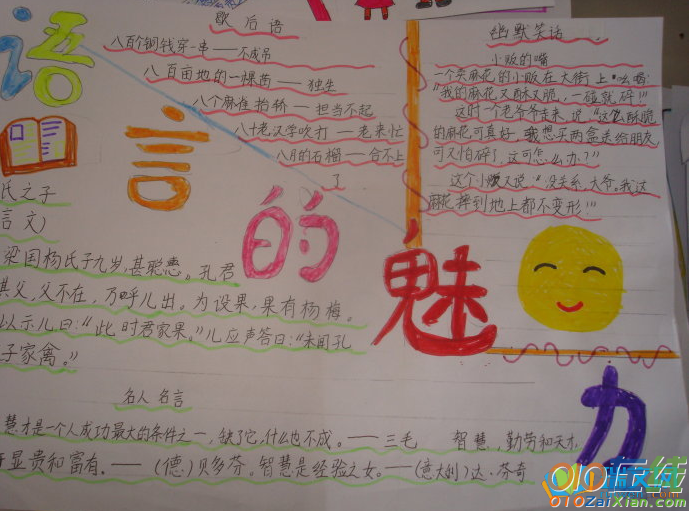 歇后语
八百个铜钱穿一串——不成吊
八百亩地的一棵苗——独生
八个麻雀抬轿——担当不起
八十老汉学吹打——老来忙
八月的石榴——合不上
了
幽默笑话
小贩的嘴
一个卖麻花的小贩在大街上吆喝:
"我的麻花又酥又脆,一碰就碎!!"
这时一个老爷爷走来,说"这么酥脆
的麻花可真好,我想买两盒送给朋友,
可又怕碎了,这可怎么办?"
这个小贩又说:"没关系,大爷。我这
麻花摔到地上都不变形!!
语言的魅力
氏之子
言文)
梁国杨氏子九岁,甚聪惠。孔君
其父,父不在,乃呼儿出。为设果,果有杨梅。
以示儿曰:"此时君家果。"儿应声答曰:"未闻孔
子家禽。"
名人名言
慧才是一个人成功最大的条件之一,缺了它,什么也不成。——三毛 智慧,勤劳和天才
显贵和富有.——(德)贝多芬。智慧是经验之女。——(意大利)达·芬奇
010在线
010ZaiXian.com